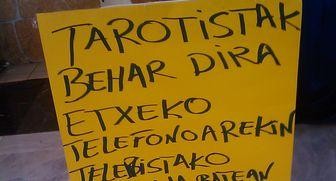 TAROTISTAK
BEHAR DIRA
ETXEKO
TELEFONOAREKIN
TELEBISTAKO
BATEAN